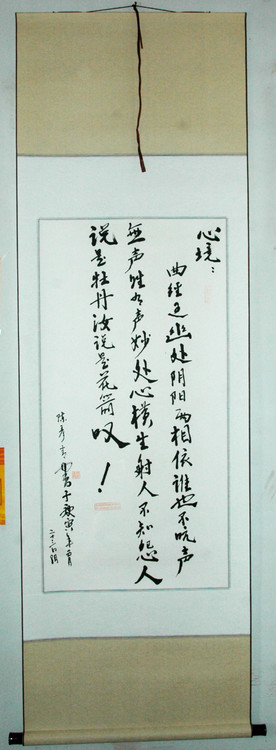 心境：
曲径通幽处阴阳两相依谁也不吭声
無声胜有声妙处心横生射人不知怨人
说是牡丹汝说是花箭叹！
庚寅年